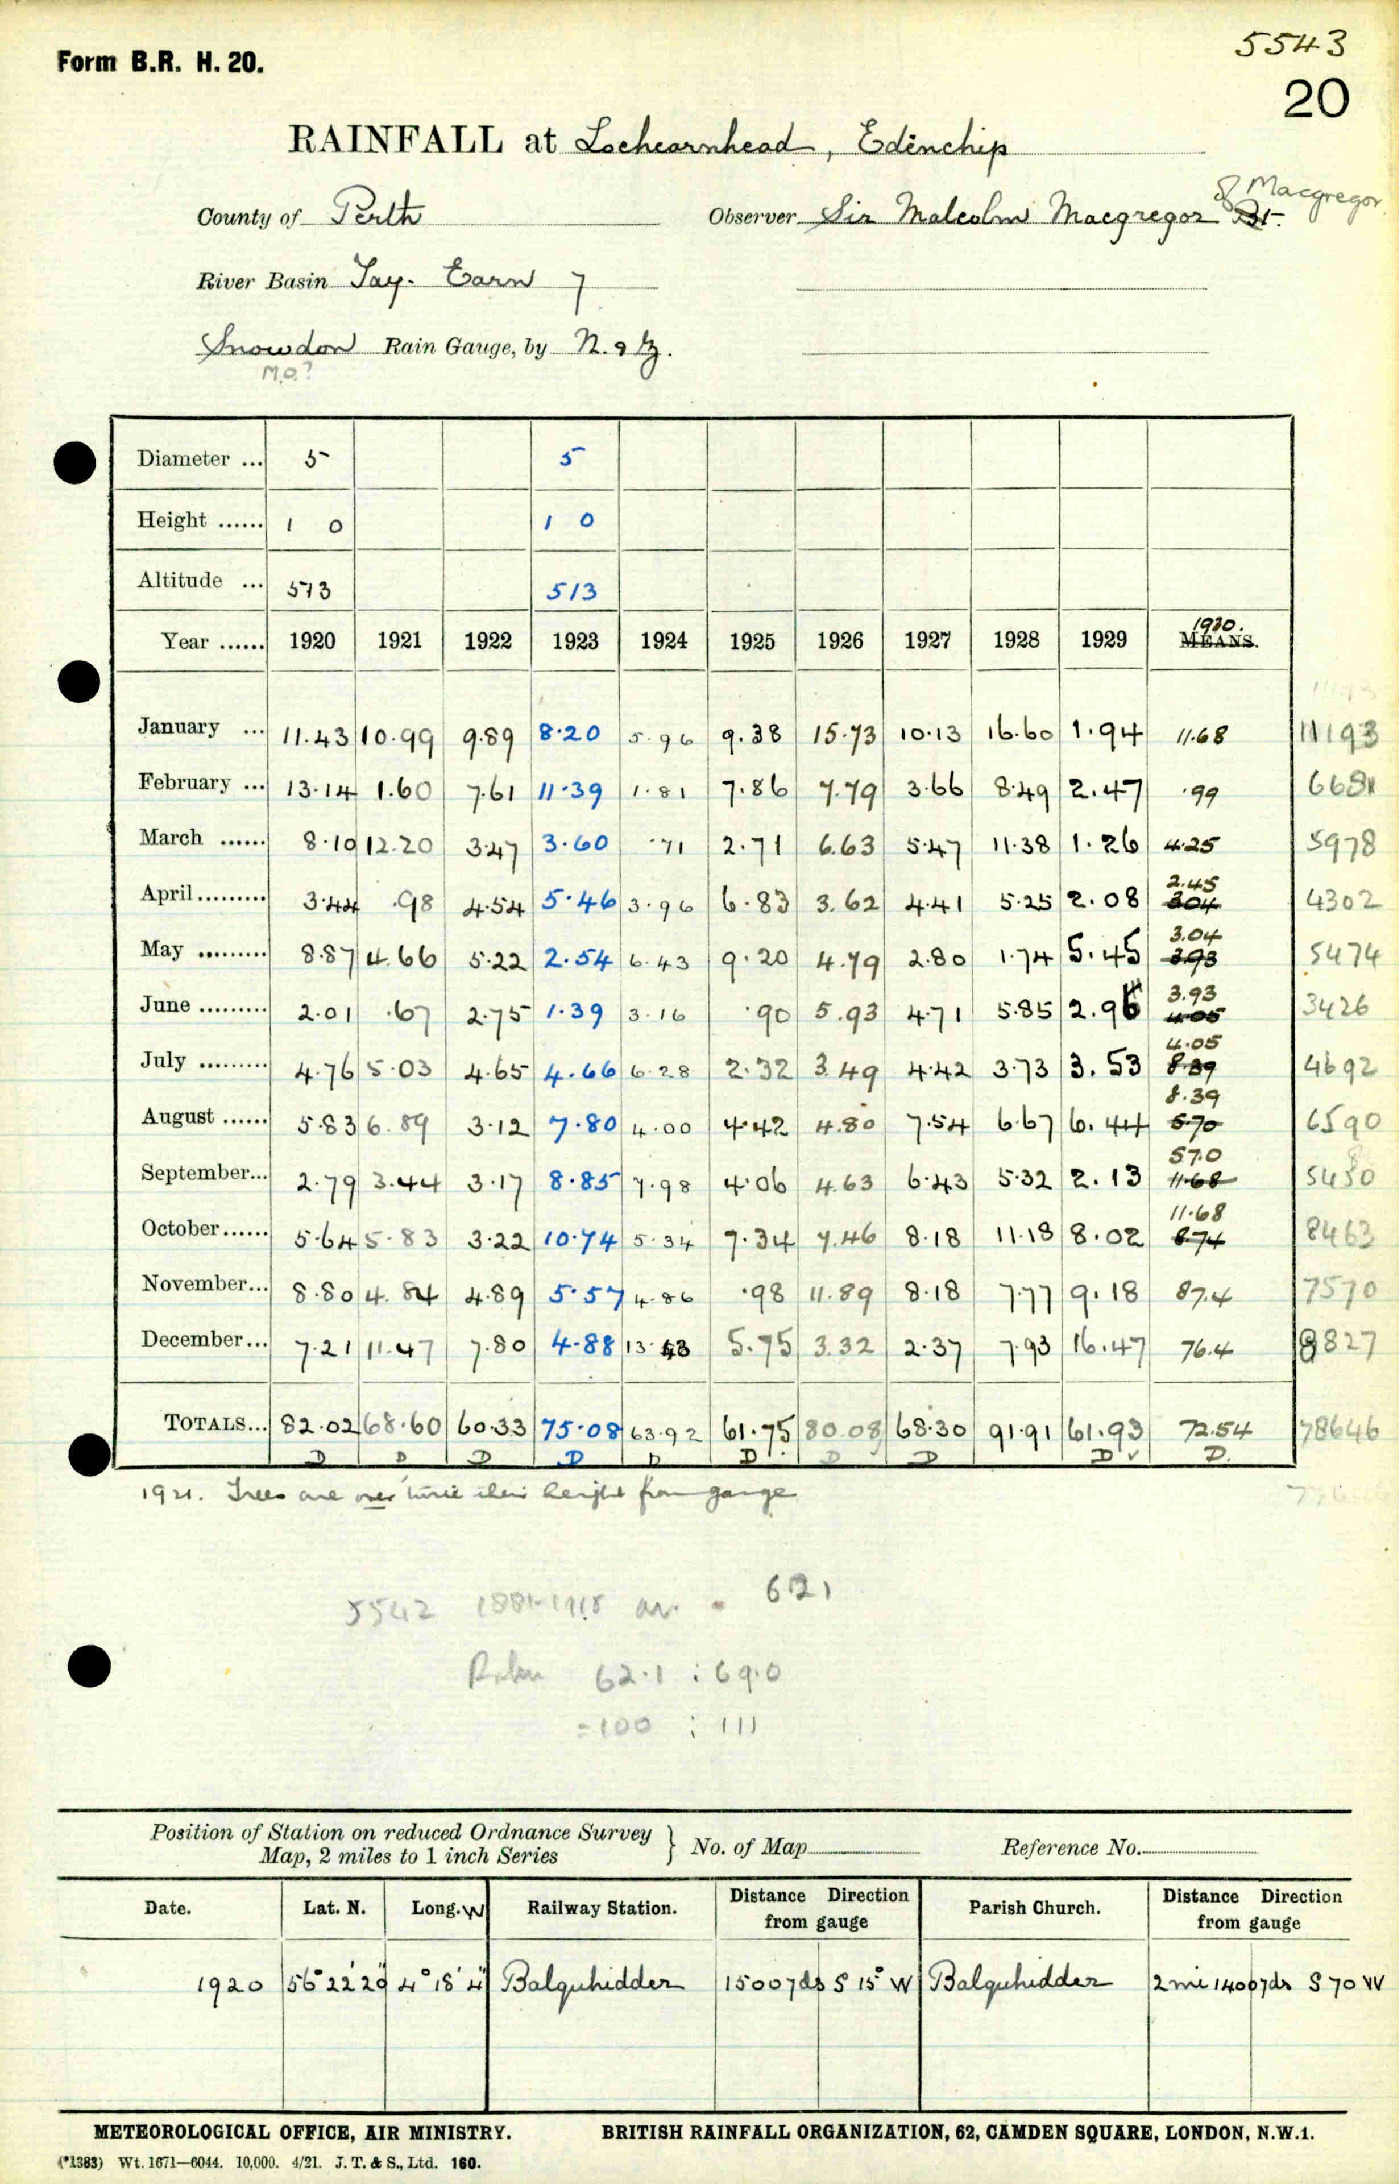 5543
Form B.R. H. 20.
20
RAINFALL at Lochearnhead, Edinchip
County of Perth Observer Sir Malcolm Macgregor Bt. of Macgregor
River Basin Tay. Earn 7
Snowdon Rain Gauge, by N. & Z.
M.O.?
Diameter ... 5 5
Height ...... 1 0 1 0
Altitude ... 573 513
Year ...... 1920 1921 1922 1923 1924 1925 1926 1927 1928 1929 MEANS. 1930.
January ... 11.43 10.99 9.89 8.20 5.96 9.38 15.73 10.13 16.60 1.94 11.68 11193
February ... 13.14 1.60 7.61 11.39 1.81 7.86 7.79 3.66 8.49 2.47 .99 6681
March ...... 8.10 12.20 3.47 3.60 .71 2.71 6.63 5.47 11.38 1.26 4.25 5978
April......... 3.44 .98 4.54 5.46 3.96 6.83 3.62 4.41 5.25 2.08 2.45 3.04 4302
May ......... 8.87 4.66 5.22 2.54 6.43 9.20 4.79 2.80 1.74 5.45 3.04 3.93 5474
June ......... 2.01 .67 2.75 1.39 3.16 .90 5.93 4.71 5.85 2.96 3.93 4.05 3426
July ......... 4.76 5.03 4.65 4.66 6.28 2.32 3.49 4.42 3.73 3.53 4.05 8.39 4692
August ...... 5.83 6.89 3.12 7.80 4.00 4.42 4.80 7.54 6.67 6.44 8.39 5.70 6590
September... 2.79 3.44 3.17 8.85 7.98 4.06 4.63 6.43 5.32 2.13 5.70 11.68 5450
October...... 5.64 5.83 3.22 10.74 5.34 7.34 7.46 8.18 11.18 8.02 11.68 8.74 8463
November... 8.80 4.84 4.89 5.57 4.86 .98 11.89 8.18 7.77 9.18 87.4 7570
December... 7.21 11.47 7.80 4.88 13.43 5.75 3.32 2.37 7.93 16.47 76.4 8827
TOTALS... 82.02 68.60 60.33 75.08 63.92 61.75 80.08 68.30 91.91 61.93 72.54 78646
D D D D D D D D D D
1921. Trees are over twice their height from gauge
5542 1881-1915 av. = 621
62.1 : 69.0
=100 : 111
Position of Station on reduced Ordnance Survey
Map, 2 miles to 1 inch Series } No. of Map Reference No.
Date. Lat. N. Long. W Railway Station. Distance Direction from gauge Parish Church. Distance Direction from gauge
1920 56° 22' 20" 4° 18' 4" Balquhidder 1500yds S 15° W Balquhidder 2mi 1400yds S 70 W
METEOROLOGICAL OFFICE, AIR MINISTRY. BRITISH RAINFALL ORGANIZATION, 62, CAMDEN SQUARE, LONDON, N.W.1.
(*1383) Wt. 1671—6044. 10,000. 4/21. J. T. & S., Ltd. 160.